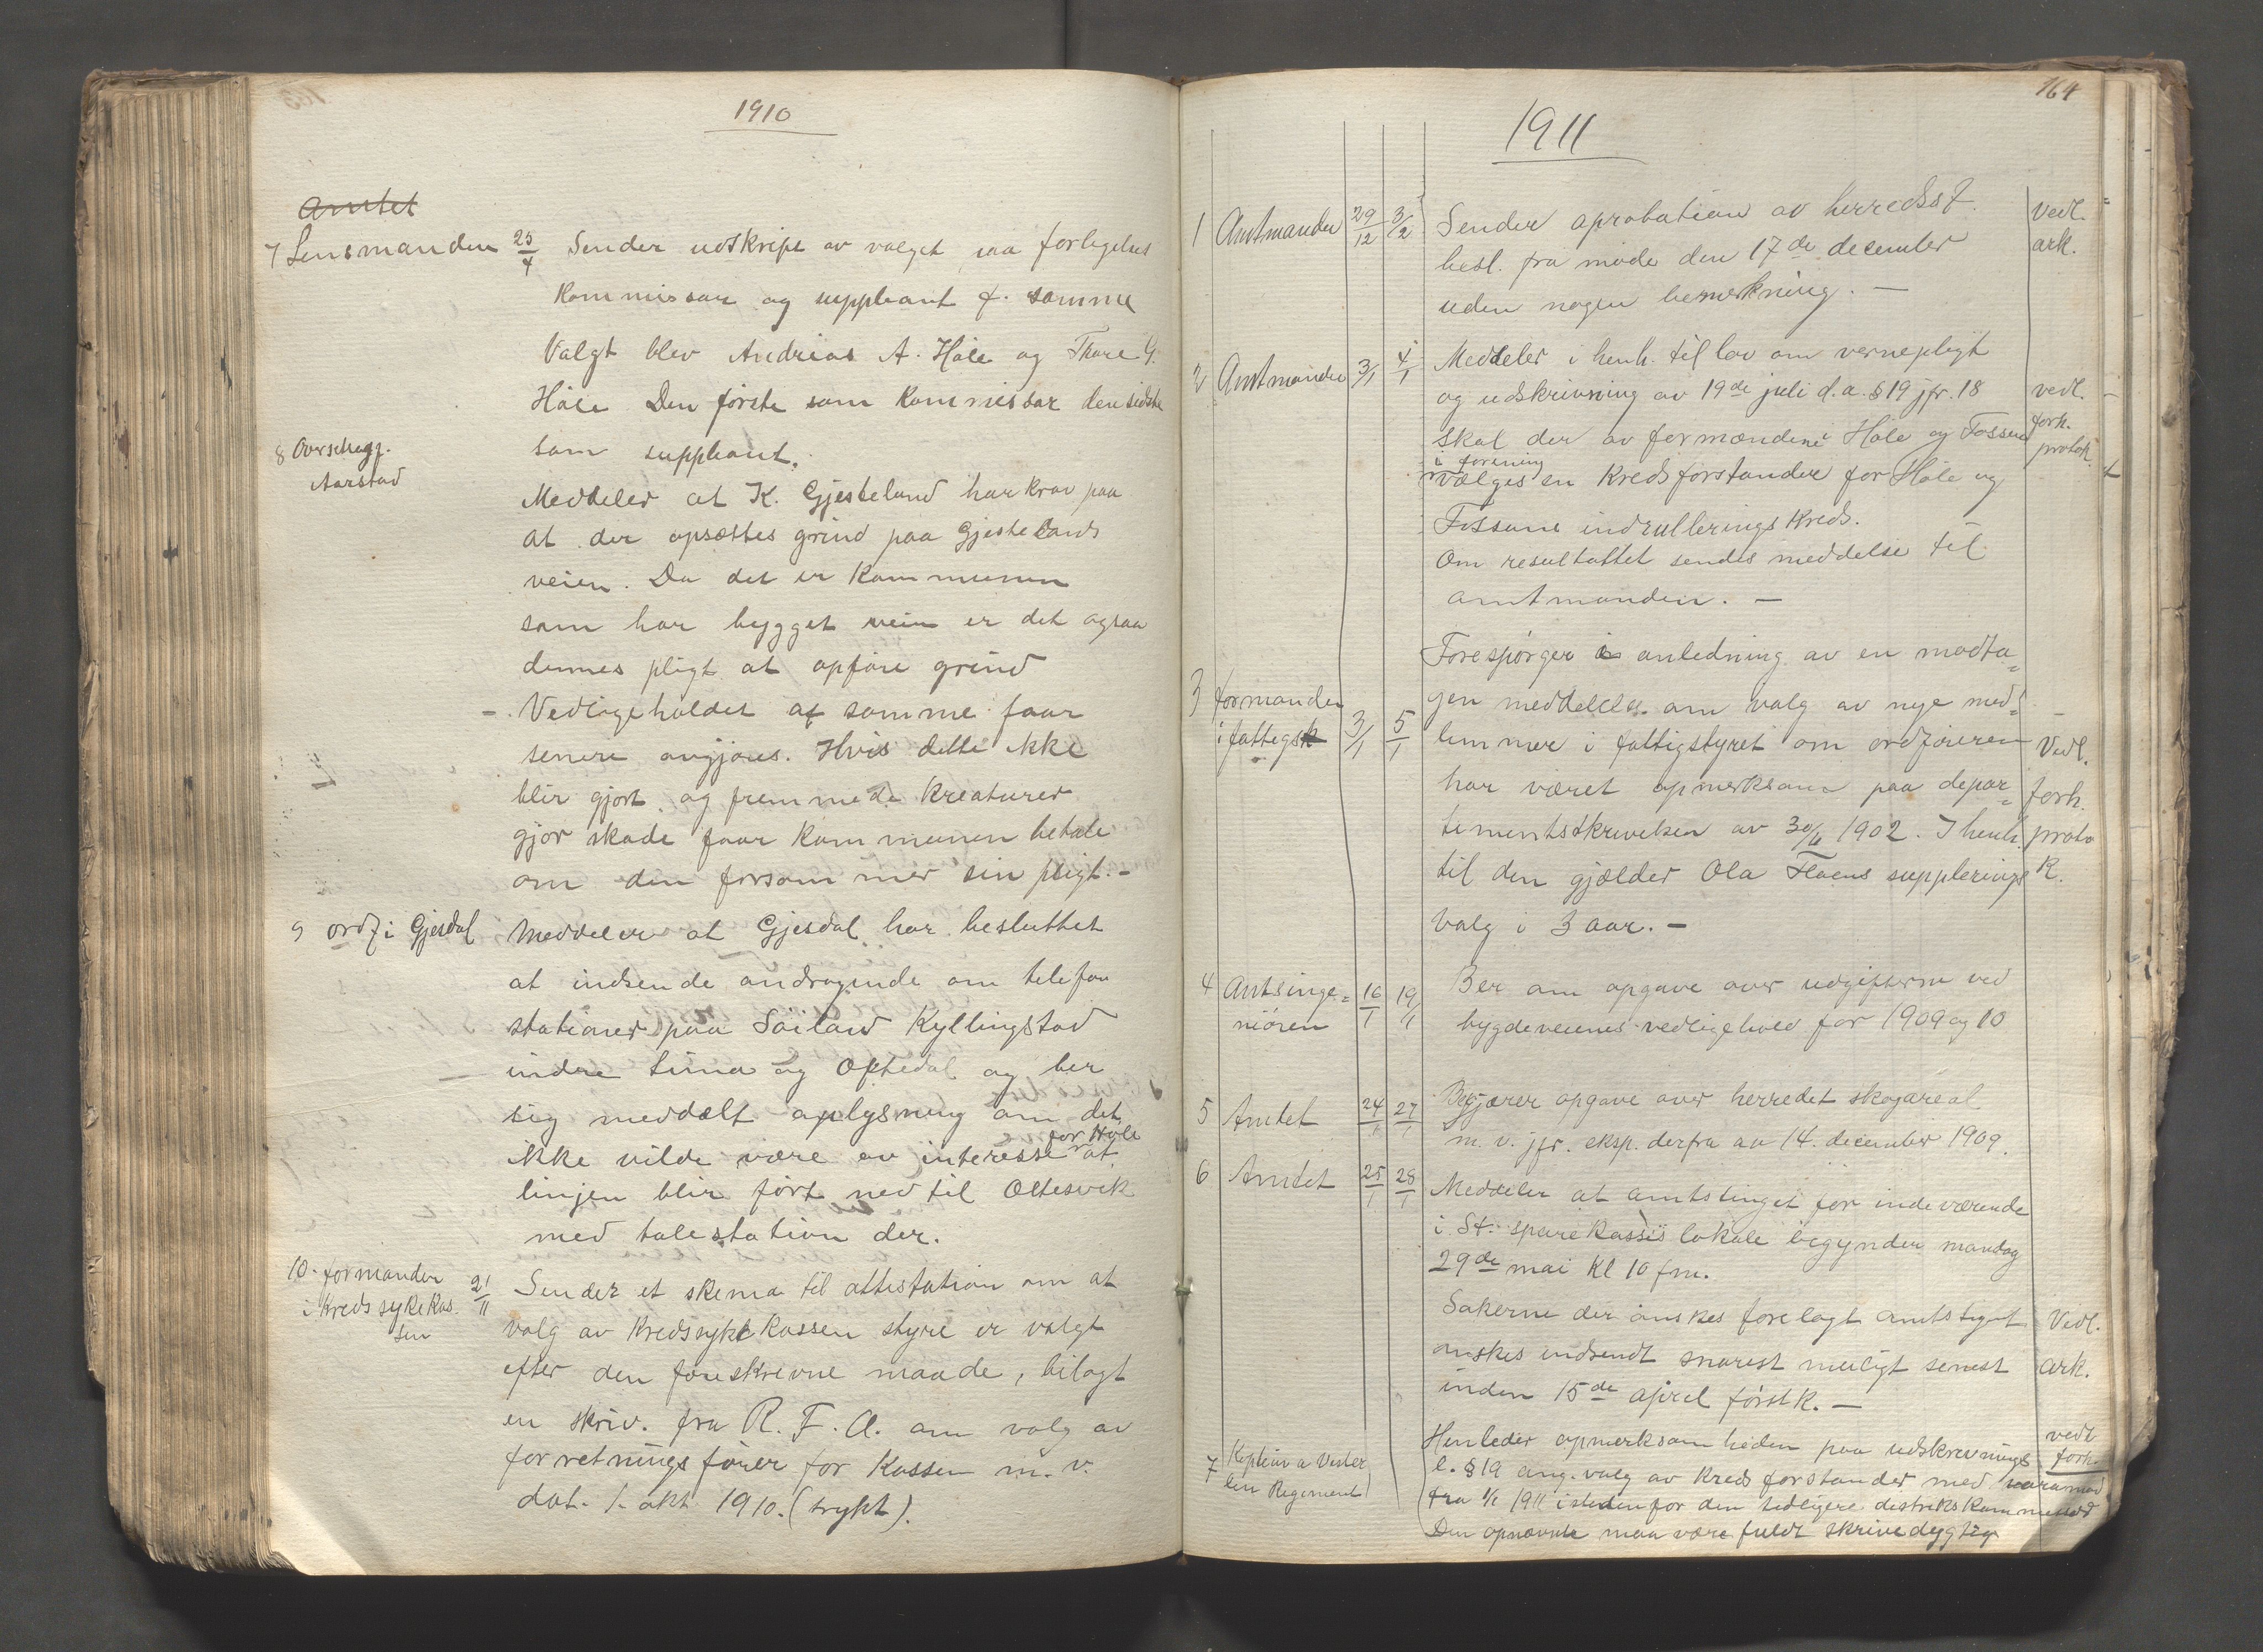 1910
Amtet
7 Lensmanden 25/4 Sender udskript av valget paa forligelses
Kommissær og suppleant f. samme
Valgt blev Andreas A. Høle og Thore G.
Høle Den første som Kommissær den sidste
som suppleant.
8 Overschegg. Aarstad
Meddeler at K. Gjesteland har krav paa
at der opsættes grind paa Gjestelands
veien. Da det er Kommunen
som har bygget veien er det ogsaa
dennes pligt at opføre grind
-. Vedligeholdet af samme faar
senere avgjøres. Hvis dette ikke
blir gjort og fremmede Kreaturer
gjør skade faar Kommunen betale
om den forsømmer sin pligt. -
9 ordf i Gjesdal Meddeler at Gjesdal har besluttet
at indsende andragende om telefon
stationer paa Søiland Kyllingstad
indre Lima og Oftedal og ber
sig meddelt oplysning om det
ikke vilde være av interesse for Høle at
linjen blir ført ned til Oltesvik
med talestation der.
10. formanden i Kredssykekas.sen 21/11 Sender et skema til attestation om at
valg av Kredssykekassen styre er valgt
efter den foreskrevne maade, bilagt
en skriv. fra R. F. A. om valg av
forretningsfører for Kassen m. v.
dat. 1. okt 1910. (trykt).
164
1911
1 Amtmanden 29/12 3/2 Sender aprobation av herredsst. vedl.
besl. fra møde den 17de december ark.
uden nogen bemerkning. -
2 Amtmanden 3/1 4/1 Meddeler i henh. til lov om vernepligt
og udskrivning av 19de juli d.a. §19 jfr. 18 vedl.
skal der av formændene i Høle og Fossan forh.
i forening protok
vælges en Kredsforstander for Høle og
Fossans indrulleringskreds.
Om resultattet sendes meddelse til
amtmanden. -
3 formanden i fattigst 3/1 5/1 Forespørger i anledning av en modta=
gen meddelelse om valg av nye med=
lemmer i fattigstyret om ordføreren Vedl.
har været opmerksom paa depar= forh.
tementsskrivelsen av 30/6 1902. I henh. proto
til den gjælder Ola Floens supplerings k.
valg i 3 aar. -
4 Amtsinge=niøren 16/1 19/1 Ber om opgave over udgifterne ved
bygdeveienes vedligehold for 1909 og 10
5 Amtet 24/1 27/1 Begjærer opgave over herredet skogareal
m. v. jfr. eksp. derfra av 14. december 1909.
6 Amtet 25/1 28/1 Meddeler at amtstinget for indeværende
i St. sparekasses lokale begynder mandag
29de mai Kl 10 fm.
Sakerne der ønskes forelagt amtstinget Vedl.
ønskes indsendt snarest muligt senest ark.
inden 15de april førstk. -
7 Kapteinen a Vester len Regiment Henleder opmerksomheden paa udskrivnings vedl
l. §19 ang. valg av Kredsforstander med varamand forh.
fra 1/1 1911 istedenfor den tidligere distriktskommissær
Den opnævnte maa være fuldt skrivedygtig